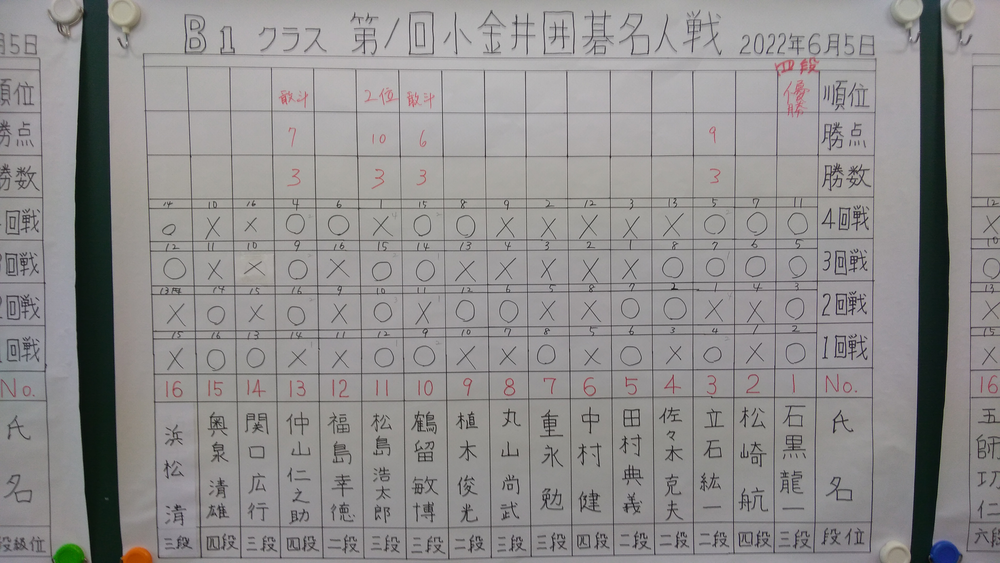 B1 クラス 第1回小金井囲碁名人戦 2022年6月5日
四段
敢斗 2位 敢斗 優勝 順位
7 10 6 9 勝点
3 3 3 3 勝数
14 10 16 4 6 1 15 8 9 2 12 3 13 5 7 11
○ × × ○ ○ × ○ ○ × × × × × ○ ○ ○ 4回戦
12 11 10 9 16 15 14 13 4 3 2 1 8 7 6 5
○ × × ○ × ○ ○ × × × × × ○ ○ ○ ○ 3回戦
14 15 16 9 10 11 12 6 5 8 7 2 1 4 3
× ○ × ○ × ○ × ○ ○ × × ○ ○ × × ○ 2回戦
15 16 13 14 11 12 9 10 7 8 5 6 3 4 1 2
× ○ ○ × × ○ ○ × × ○ × ○ × ○ × ○ 1回戦
16 15 14 13 12 11 10 9 8 7 6 5 4 3 2 1 No.
浜松清 奥泉清雄 関口広行 仲山仁之助 福島幸德 松島浩太郎 鶴留敏博 植木俊光 丸山尚武 重永勉 中村健 田村典義 佐々木克夫 立石紘一 松崎航 石黒龍一 氏名
三段 四段 三段 四段 二段 三段 三段 二段 二段 三段 四段 二段 二段 二段 四段 三段 段位
月5日
順位
勝点
勝数
回戦
回戦
2回戦
回戦
No.
氏名
段級位
12
×
10
○
13
×
15
○
16
五師巧仁
六段